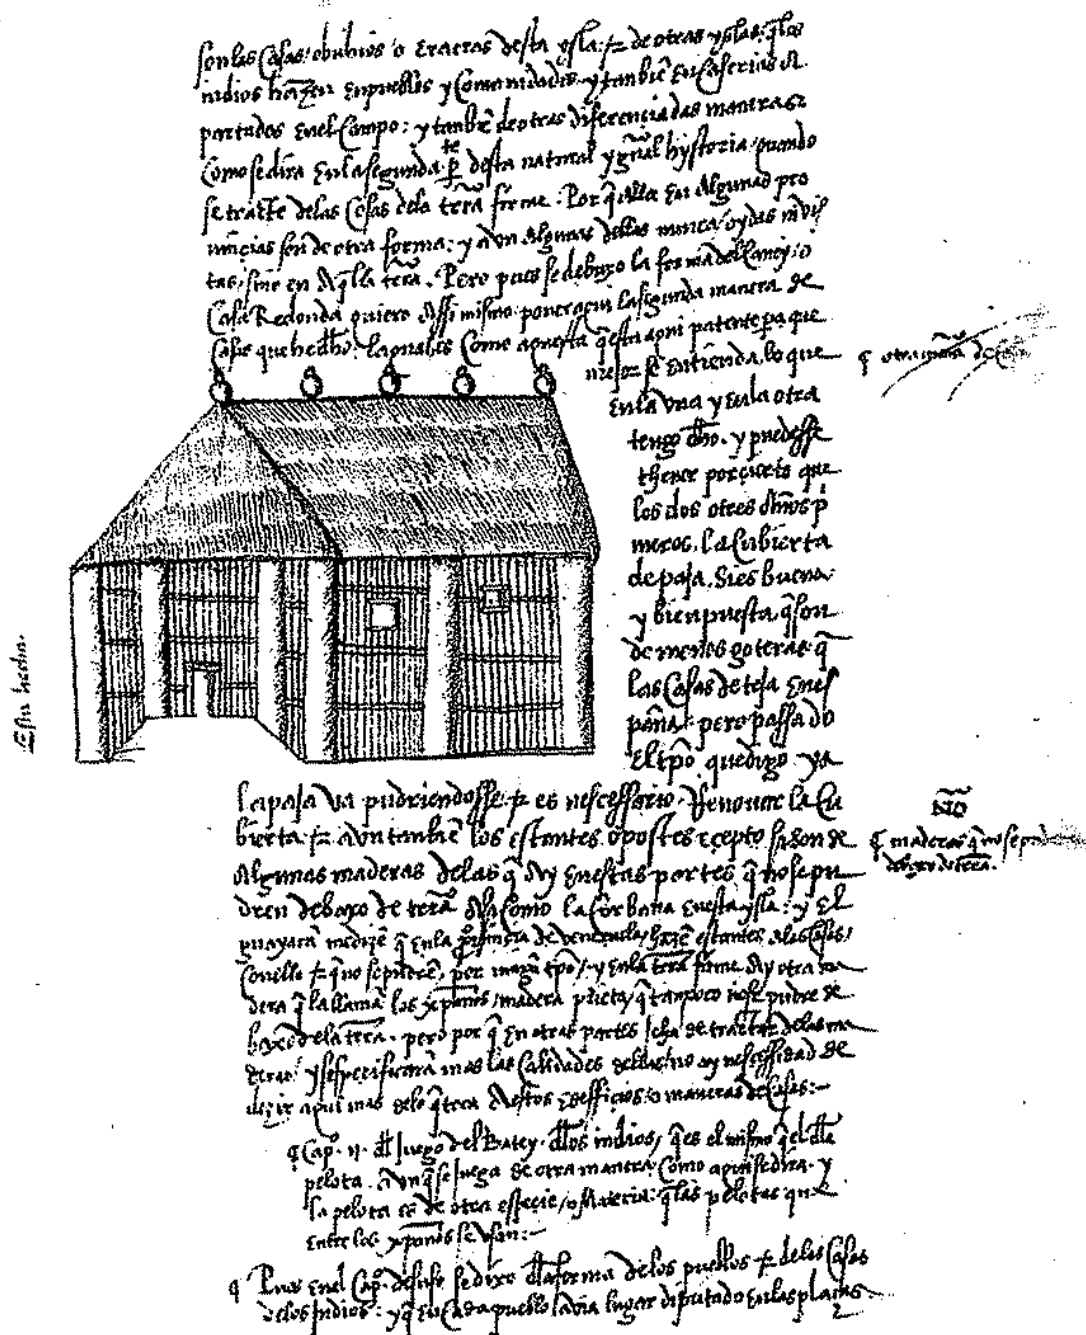 son las Casas o buhios o eracras desta ysla: & de otras yslas, q̃ los
indios hazen en pueblos y Comunidades y tanbiẽ en Caserias A
partados en el Campo: y tanbiẽ de otras diferençiadas maneras
Como se dira en la segunda p.te desta natural y gñral hystoria quando
se tracte delas Cosas dela trã firme. Por q̃ alla en Algunas pro
uinçias son de otra forma: y avn Algunas dellas nunca oydas ni vis
tas, sino en Aq̃lla trã. Pero pues se debuxo la forma del Caney, o
Casa Redonda quiero Assi mismo poner aqui la segunda manera de
Casas que he dho: las quales Como aquesta q̃ esta aqui patente pa que
mejor se entienda lo que
en la vna y en la otra
tengo dho. y puedesse
thener por çierto que
los dos otres años p̃
meros, la Cubierta
de paja, Si es buena
y bien puesta, q̃ son
de menos goteras q̃
las Casas de teja en es
paña: pero passado
el tpõ que digo ya
la paja va pudriendosse & es nesçessario Renouar la Cu
bierta & avn tanbiẽ los estantes o postes eçepto si son de
Algunas maderas de las q̃ ay en estas partes q̃ no se pu
dren debaxo de trã Asi como la Corbana en esta ysla: y el
guayacã me dizẽ q̃ en la p̃uinçia de Veneçuela, hazẽ estantes a las Casas,
Con ello & q̃ no se pudrẽ, por ningũ tpõ, y en la trã firme Ay otra ma
dera q̃ la llamã los xp̃anos, madera prieta, q̃ tanpoco no se pudre de
baxo dela trã. pero por q̃ en otras partes se ha de tractar delas ma
deras: y se espeçificarã mas las Calidades dellas, no ay nesçessidad de
dezir aqui mas delo q̃ toca Aestos edeffiçios, o maneras de Casas:
¶ Cap.º II. dl Juego del Batey dlos indios, q̃ es el mismo q̃ el dla
pelota. avnq̃ se juega de otra manera Como aqui se dira. y
la pelota es de otra espeçie, o Materia: q̃ las pelotas que
entre los xp̃anos se vsan:
¶ Pues en el Cap.º de suso se dixo dla forma delos pueblos & delas Casas
delos Indios: y q̃ en Cada pueblo auia lugar diputado en las plaças
¶ otra manã de
Nõ
¶ maderas q̃ no se pudren
debaxo de trã.
Esta hecha.